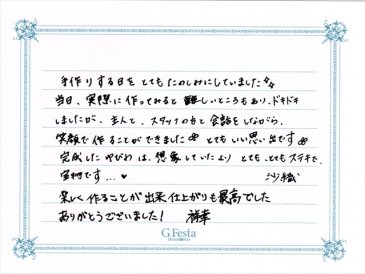 手作りする日をとてもたのしみにしていました♪♪
当日、実際に作ってみると難しいところもあり、ドキドキ
しましたが、主人と、スタッフの方と会話をしながら、
笑顔で作ることができました とてもいい思い出です
完成したゆびわは、想像していたより とても、とてもステキで、
宝物です…♥
沙織
楽しく作ることが出来、仕上がりも最高でした
ありがとうございました! 祥幸
G.Festa
DIAMOND